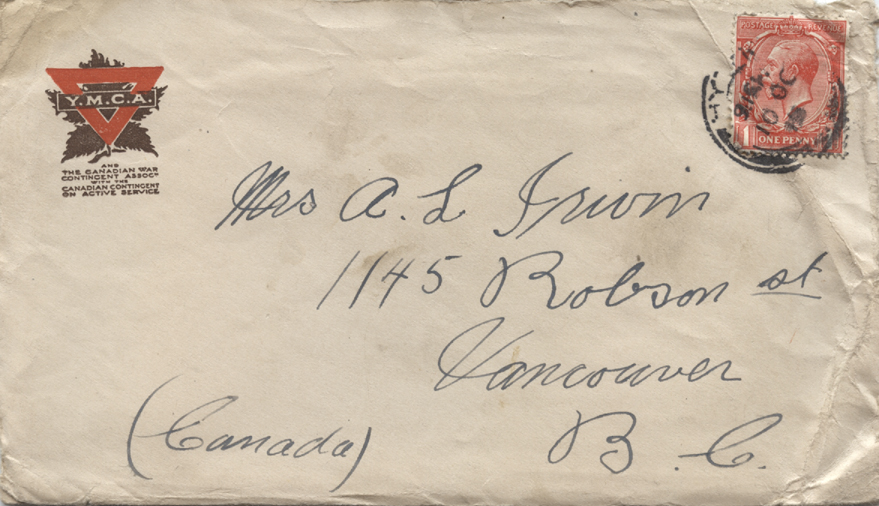 POSTAGE REVENUE
10 OC
1 ONE PENNY
Y.M.C.A.
AND
THE CANADIAN WAR
CONTINGENT ASSOCN
WITH THE
CANADIAN CONTINGENT
ON ACTIVE SERVICE
Mrs A. L Irwin
1145 Robson st
Vancouver
B. C.
(Canada)